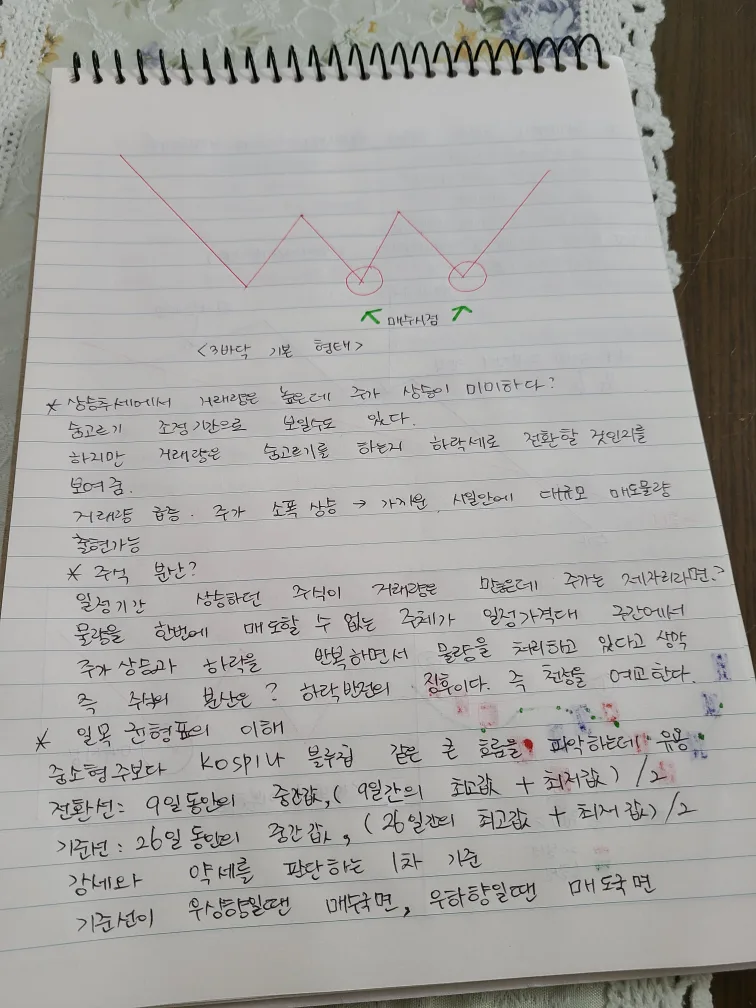 매수시점
<3바닥 기본 형태>
* 상승추세에서 거래량은 높은데 주가 상승이 미미하다?
숨고르기 조정기간으로 보일수도 있다.
하지만 거래량은 숨고르기를 하는지 하락세로 전환할 것인지를
보여줌.
거래량 급증. 주가 소폭 상승 → 가까운 시일안에 대규모 매도물량
출현가능
* 주식 분산?
일정기간 상승하던 주식이 거래량은 많은데 주가는 제자리라면?
물량을 한번에 매도할 수 없는 주체가 일정가격대 구간에서
주가상승과 하락을 반복하면서 물량을 처리하고 있다고 생각
즉 주식의 분산은? 하락반전의 징후이다. 즉 천장을 예고한다.
* 일목 균형표의 이해
중소형주보다 KOSPI나 블루칩 같은 큰 흐름을 파악하는데 유용
전환선: 9일동안의 중간값, (9일간의 최고값 + 최저값) / 2
기준선: 26일 동안의 중간값, (26일간의 최고값 + 최저값) / 2
강세와 약세를 판단하는 1차 기준
기준선이 우상향일땐 매수국면, 우하향일땐 매도국면